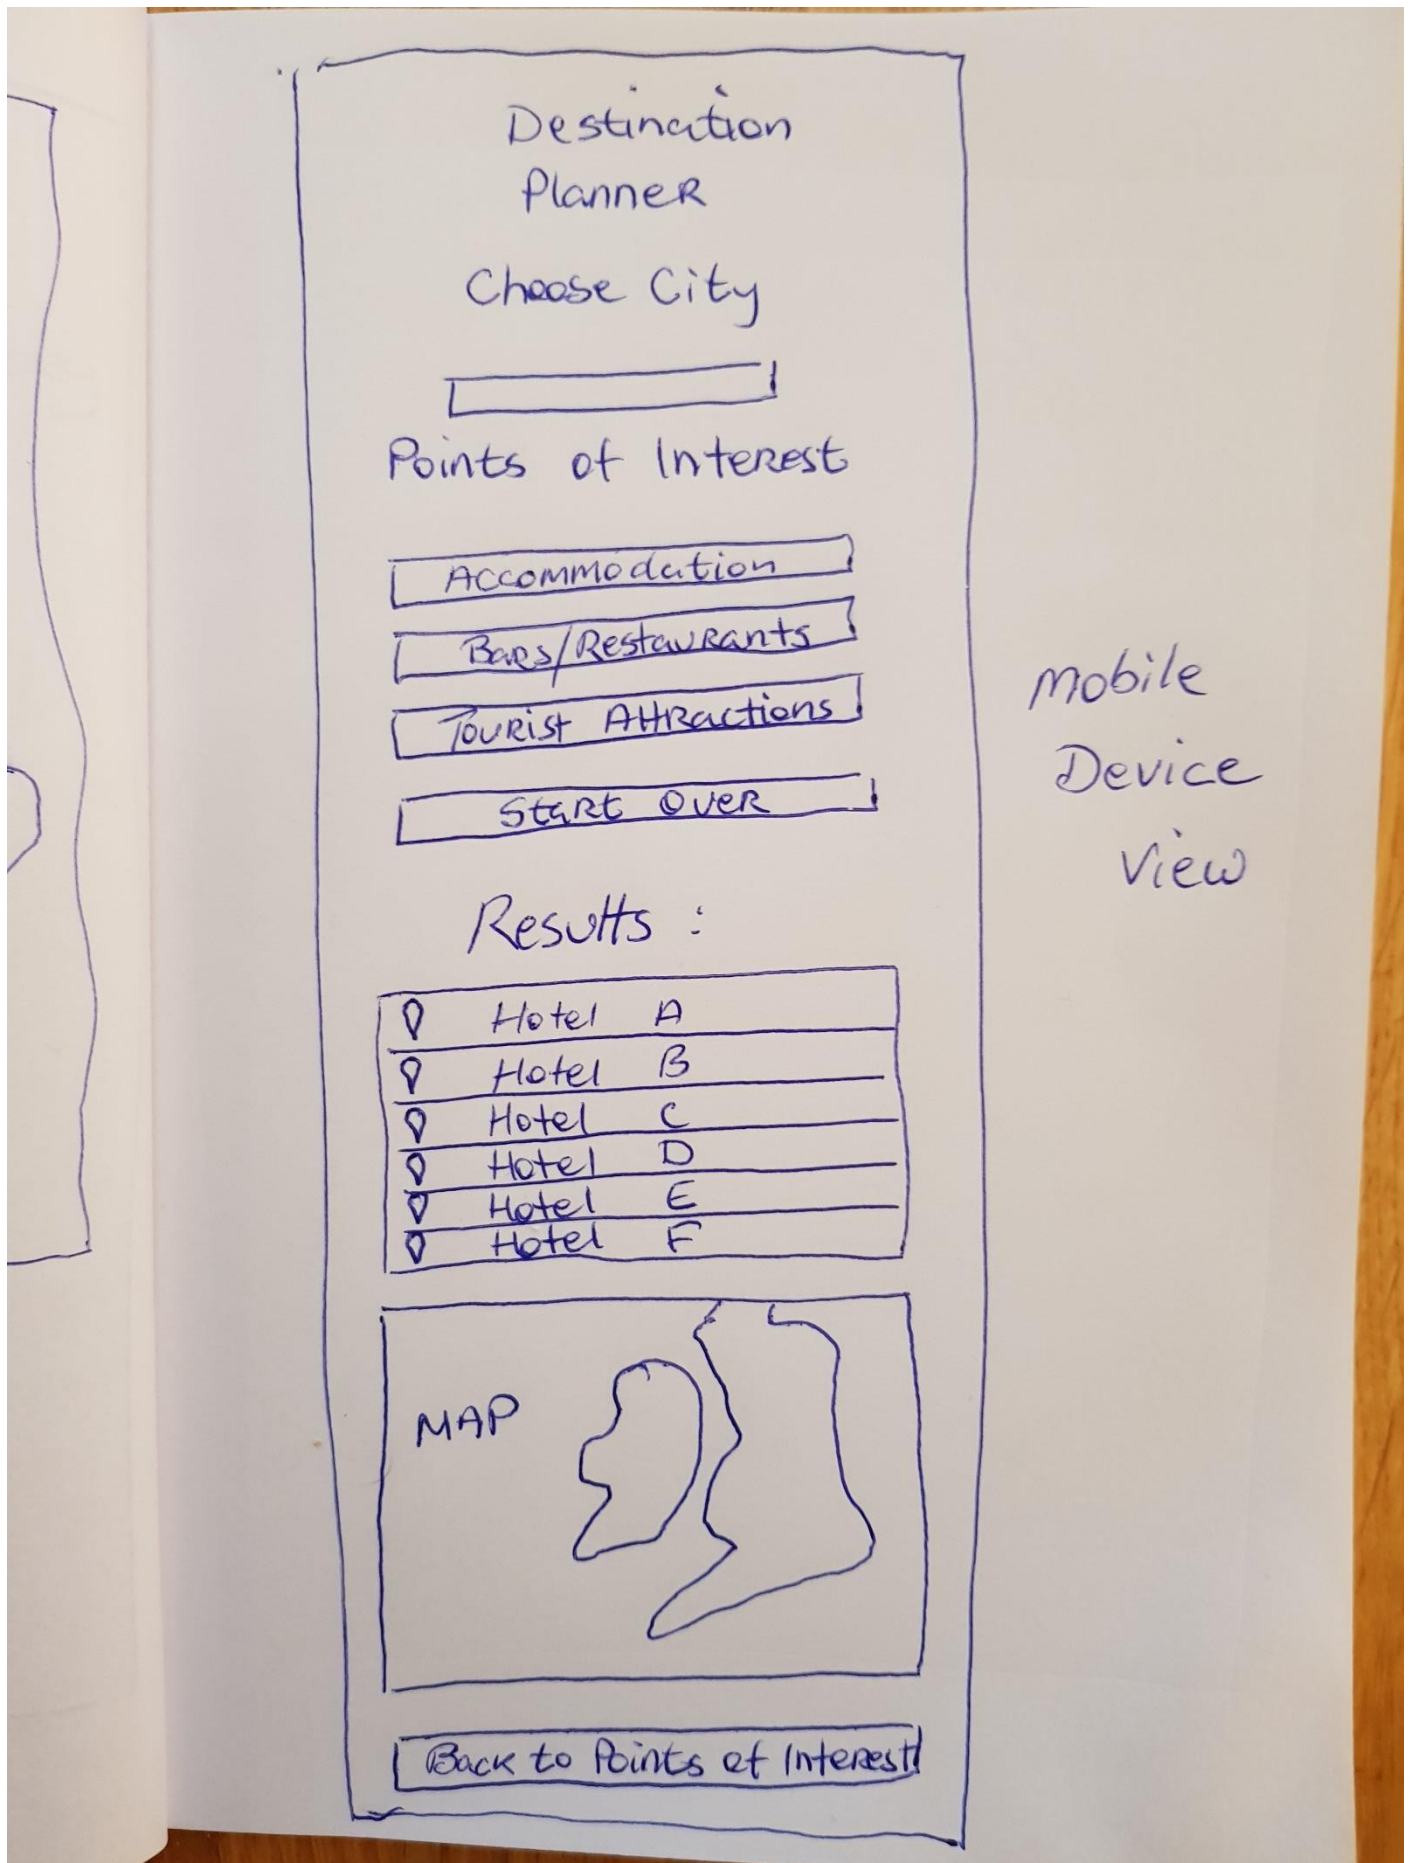 Destination
Planner
Choose City
Points of Interest
Accommodation
Bars/Restaurants
Tourist Attractions
Start Over
Results :
Hotel A
Hotel B
Hotel C
Hotel D
Hotel E
Hotel F
MAP
Back to Points of Interest
Mobile
Device
View